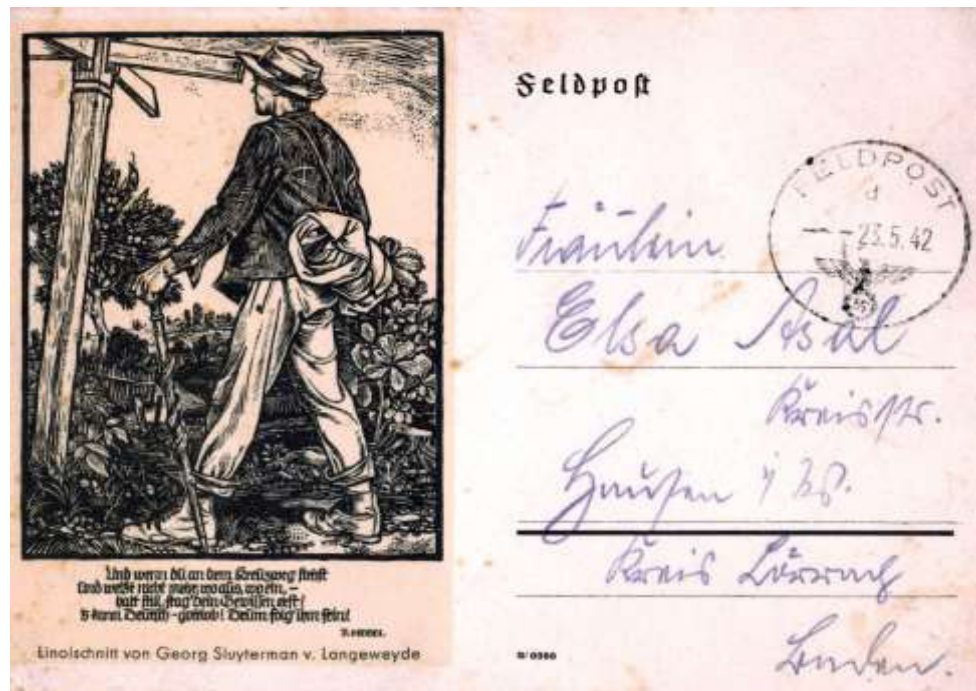 Und wenn du an dem Kreuzweg stehst
Und weißt nicht mehr, wo aus, wo ein, –
halt still, frag' dein Gewissen erst!
's kann Deutsch – gottlob! Drum folg ihm fein!
P. HEBEL.
Linolschnitt von Georg Sluyterman v. Langeweyde
Feldpost
FELDPOST
d
23.5.42
Fräulein
Elsa Asal
Kreisstr.
Hausen
Kreis Lörrach
Baden.